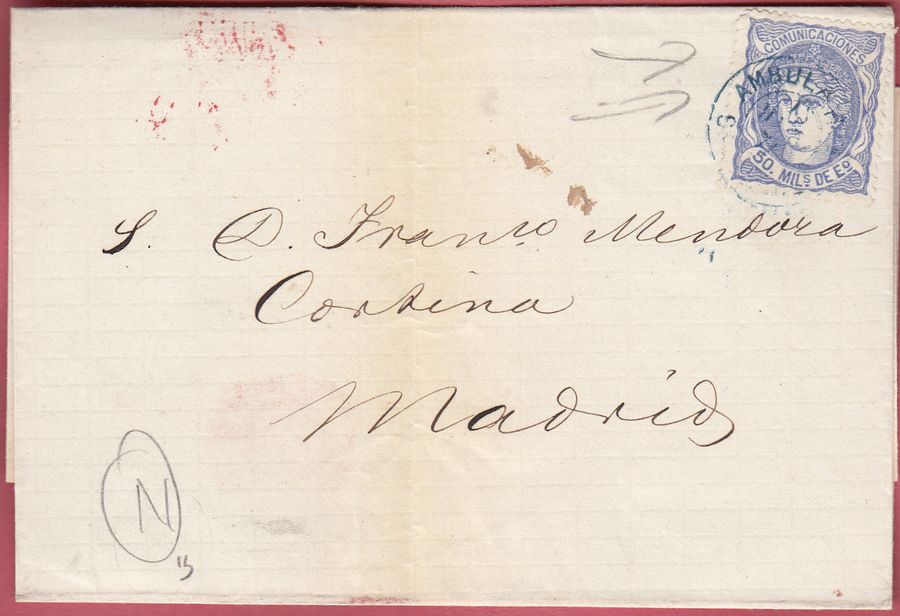 COMUNICACIONES
AMBULA
50. MILS DE EO
S. D. Franco Mendora
Cortina
Madrid
N